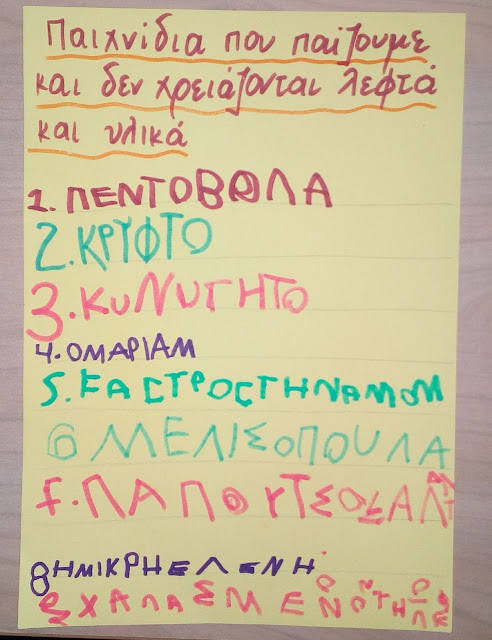 Παιχνίδια που παίζουμε
και δεν χρειάζονται λεφτά
και υλικά
1. ΠΕΝΤΟΒΟΛΑ
2. ΚΡΥΦΤΟ
3. ΚυΝΥΓΗΤΟ
4. ΟΜΑΡΙΑΜ
5. ΚΑΣΤΡΟΣΤΗΝΑΜΟΜ
6 ΜΕΛΙΣΟΠΟΥΛΑ
7. ΠΑΠΟΥΤΣΟ
8 ΗΜΙΚΡΗΕΛΕΝΗ
9 ΧΑΛΑΣΜΕΝΟΤΗ